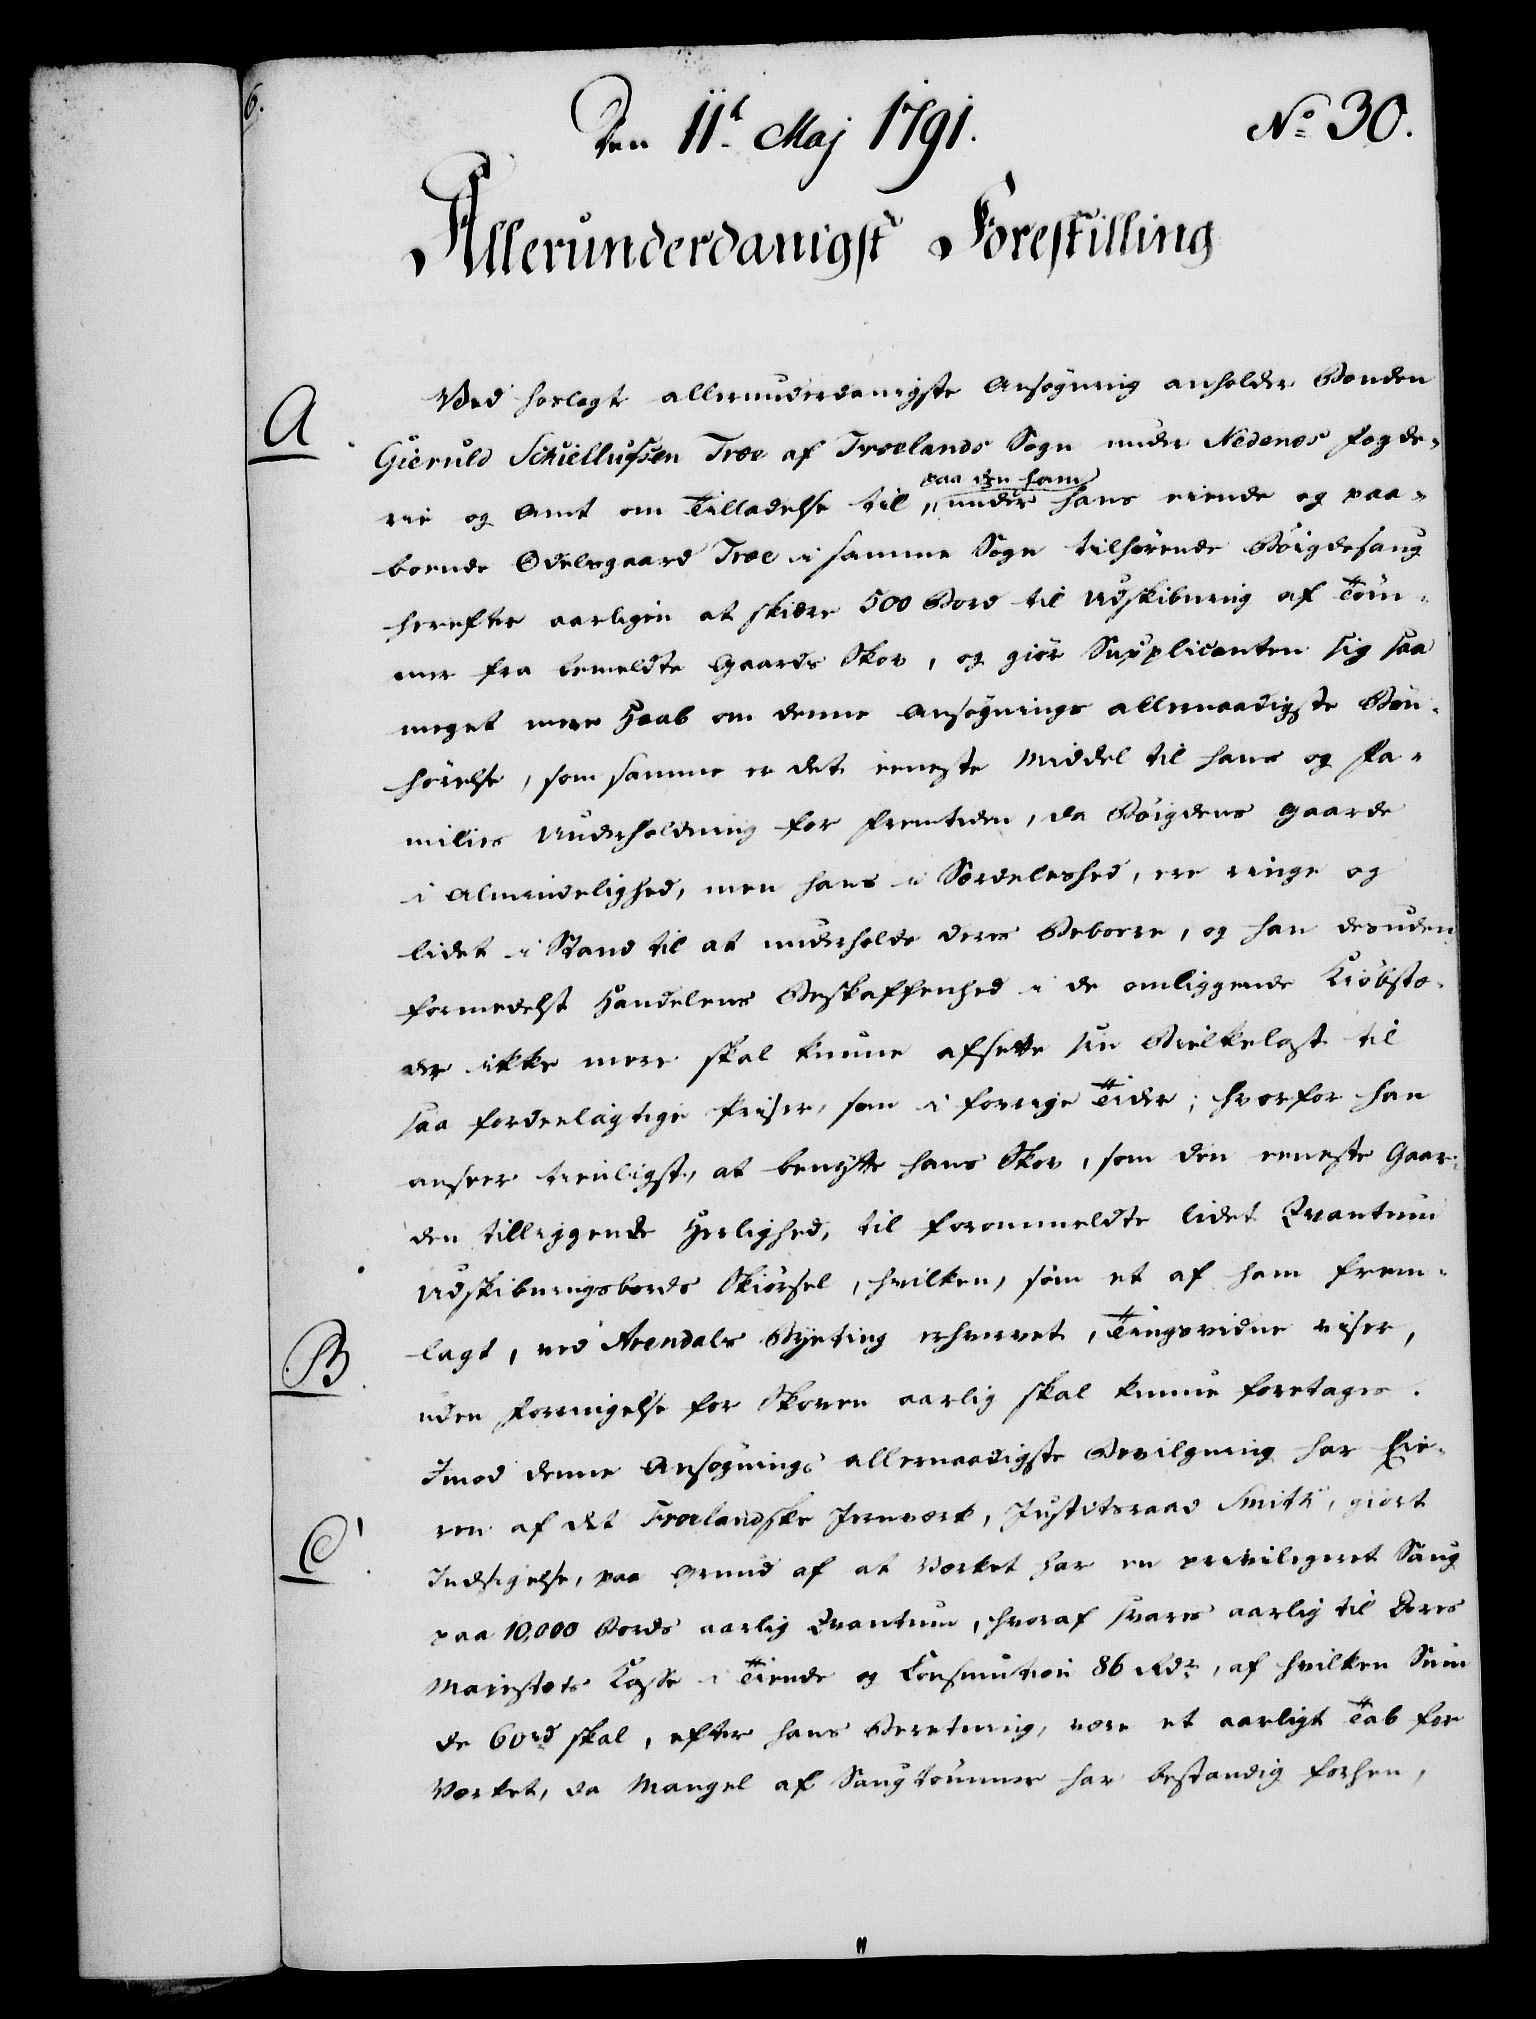 6.
Den 11t Maj 1791.
No 30.
Allerunderdanigst Forestilling
A
Ved hoslagte allerunderdanigste Ansøgning anholder Bonden
Gieruld Schiellufsen Træe af Froelands Sogn under Nedenes Fogde-
rie og Amt om Tilladelse til, under hans eiende og paa-
paa den ham
boende Odelsgaard Træe i samme Sogn tilhørende Bøigdesaug
herefter aarligen at skiære 500 Bord til Udskibning af Tøm-
mer fra bemeldte Gaards Skov, og giør Supplicanten sig saa
meget mere Haab om denne Ansøgnings allernaadigste Bøn-
hørelse, som samme er det eeneste Middel til hans og Fa-
milies Underholdning for Fremtiden, da Bøigdens Gaarde
i Almindelighed, men hans i Særdeleshed, ere ringe og
lidet i Stand til at underholde deres Beboere, og han desuden
formedelst Handelens Beskaffenhed i de omliggende Kiøbstæ-
der ikke mere skal kunne afsette sin Bielkelast til
saa fordeelagtige Priser, som i forrige Tider; hvorfor han
anseer tienligst, at benytte hans Skov, som den eeneste Gaar-
den tilliggende Herlighed, til forommeldte lidet Qvantum
Udskibningsbords Skiørsel, hvilken, som et af ham frem-
B
lagt, ved Arendals Byeting erhvervet, Tingsvidne viser,
uden Forringelse for Skoven aarlig skal kunne foretages.
Imod denne Ansøgnings allernaadigste Bevilgning har Eie-
C
ren af det Froelandske Jernværk, Justitsraad Smith, giort
Indsigelse, paa Grund af at Værket har en privilegeret Saug
paa 10,000 Bords aarlig Qvantum, hvoraf svares aarlig til Deres
Majestæts Kasse i Tiende og Consumtion 86 Rdr, af hvilken Sum
de 60rd skal, efter hans Beretning, være et aarligt Tab for
Værket, da Mangel af Saugtømmer har bestandig forhen,